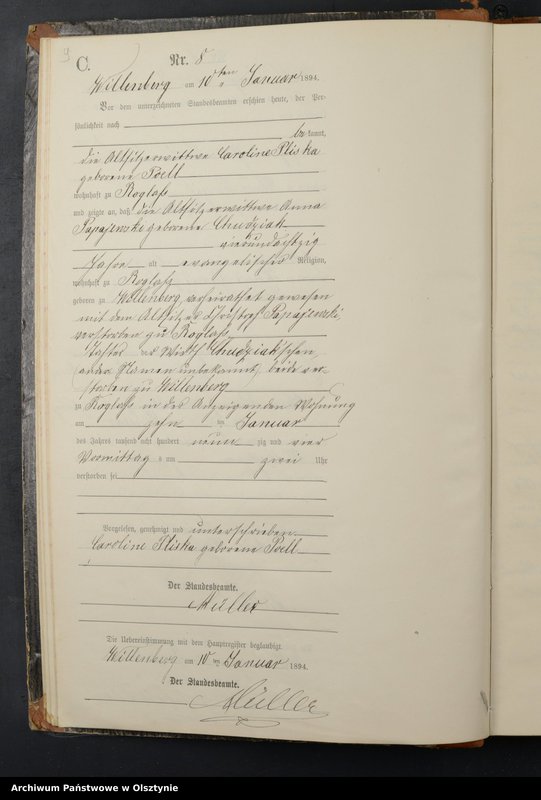 9
C.
Nr. 8
Willenberg am 10ten Januar 1894.
Vor dem unterzeichneten Standesbeamten erschien heute, der Per-
sönlichkeit nach
be kannt,
die Altsitzerwittwe Caroline Pliska
geborene Poell
wohnhaft zu Roglass
und zeigte an, daß die Altsitzerwittwe Anna
Papajewski geborene Chudziak
vierundachtzig
Jahre alt evangelischer Religion,
wohnhaft zu Roglass
geboren zu Willenberg, verheirathet gewesen
mit dem Altsitzer Christoph Papajewski,
verstorben zu Roglass
Tochter der Wirth Chudziakschen
Namen unbekannt, beide ver-
storben zu Willenberg
zu Roglass in der Anzeigenden Wohnung
am zehn ten Januar
des Jahres tausend acht hundert neun zig und vier
Vormittag s um zwei Uhr
verstorben sei
Vorgelesen, genehmigt und unterschrieben
Caroline Pliska geborene Poell
Der Standesbeamte.
Müller
Die Uebereinstimmung mit dem Hauptregister beglaubigt
Willenberg am 10 ten Januar 1894.
Der Standesbeamte.
Müller
Archiwum Państwowe w Olsztynie